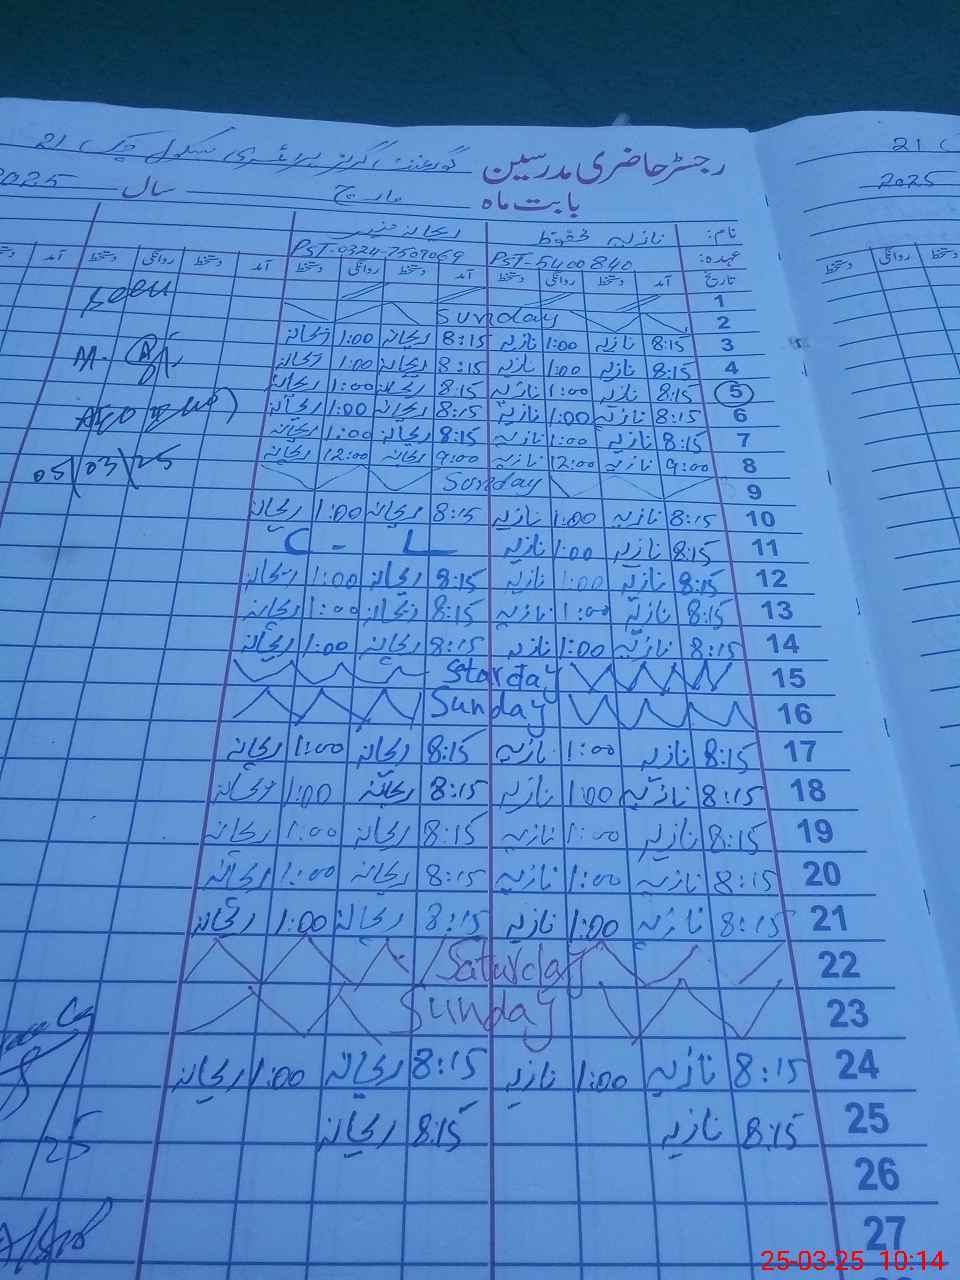 رجسٹر حاضری مدرسین گورنمنٹ گرلز پرائمری سکول چک 21
بابت ماہ مارچ سال 2025
نام: نازیہ ریحانہ
عہدہ: PST-5400840 PST-0324-7507069
تاریخ آمد دستخط روانگی دستخط آمد دستخط روانگی دستخط آمد دستخط روانگی دستخط
1
2 Sunday
3 8:15 نازیہ 1:00 نازیہ 8:15 ریحانہ 1:00 ریحانہ
4 8:15 نازیہ 1:00 نازیہ 8:15 ریحانہ 1:00 ریحانہ
5 8:15 نازیہ 1:00 نازیہ 8:15 ریحانہ 1:00 ریحانہ
6 8:15 نازیہ 1:00 نازیہ 8:15 ریحانہ 1:00 ریحانہ
7 8:15 نازیہ 1:00 نازیہ 8:15 ریحانہ 1:00 ریحانہ
8 9:00 نازیہ 12:00 نازیہ 9:00 ریحانہ 12:00 ریحانہ
9 Sunday
10 8:15 نازیہ 1:00 نازیہ 8:15 ریحانہ 1:00 ریحانہ
11 8:15 نازیہ 1:00 نازیہ C - L
12 8:15 نازیہ 1:00 نازیہ 8:15 ریحانہ 1:00 ریحانہ
13 8:15 نازیہ 1:00 نازیہ 8:15 ریحانہ 1:00 ریحانہ
14 8:15 نازیہ 1:00 نازیہ 8:15 ریحانہ 1:00 ریحانہ
15 Starday
16 Sunday
17 8:15 نازیہ 1:00 نازیہ 8:15 ریحانہ 1:00 ریحانہ
18 8:15 نازیہ 1:00 نازیہ 8:15 ریحانہ 1:00 ریحانہ
19 8:15 نازیہ 1:00 نازیہ 8:15 ریحانہ 1:00 ریحانہ
20 8:15 نازیہ 1:00 نازیہ 8:15 ریحانہ 1:00 ریحانہ
21 8:15 نازیہ 1:00 نازیہ 8:15 ریحانہ 1:00 ریحانہ
22 Saturday
23 Sunday
24 8:15 نازیہ 1:00 نازیہ 8:15 ریحانہ 1:00 ریحانہ
25 8:15 نازیہ 8:15 ریحانہ
26
27
05/03/25
21
2025
دستخط روانگی
25-03-25 10:14